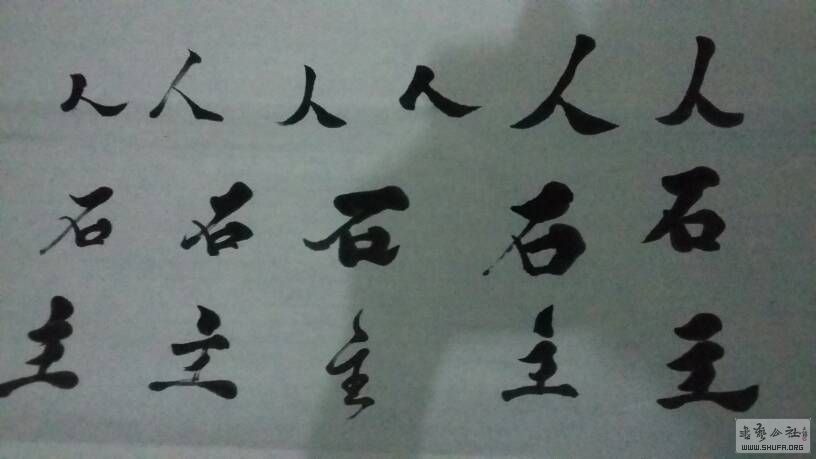 人人人人人人
石石石石石
主主主主主
书艺公社
WWW.SHUFA.ORG